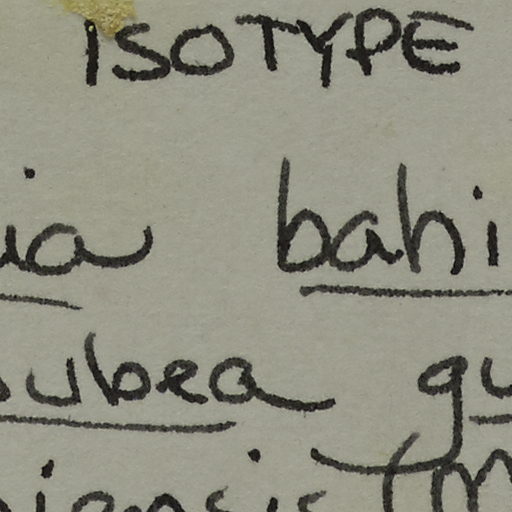 ISOTYPE
ia bahi
ubea gu
iensis (M